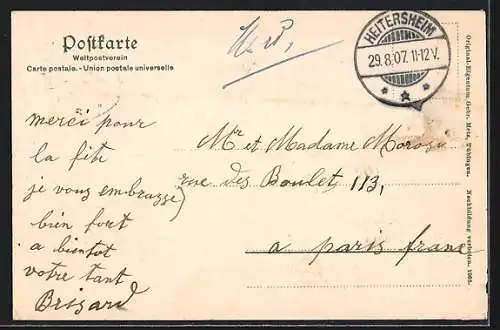 Postkarte
Weltpostverein
Carte postale. - Union postale universelle
HEITERSHEIM
29.8.07. 11-12 V.
merci pour
la fête
je vous embrasse
bien fort
a bientot
votre tant
Brisard
Mr et Madame
rue des Boulet, 113,
a paris france
Original-Eigentum Gebr. Metz, Tübingen. Nachbildung verboten. 1905.